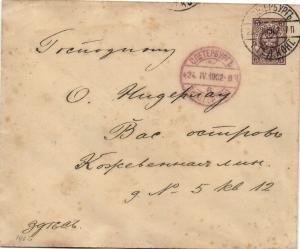 С.ПЕТЕРБУРГЪ
Господину
24. IV. 1902
О. Нидерлау
Вас островъ
Кожевенная лин.
д № 5 кв 12
здѣсь.